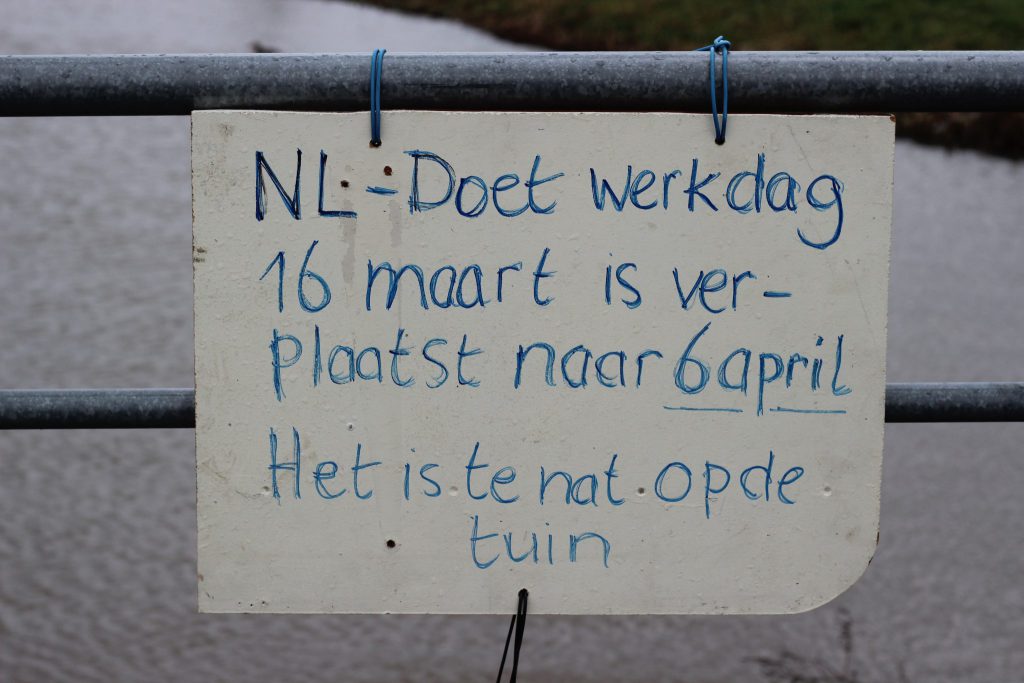 NL-Doet werkdag
16 maart is ver-
plaatst naar 6 april
Het is te nat op de
tuin